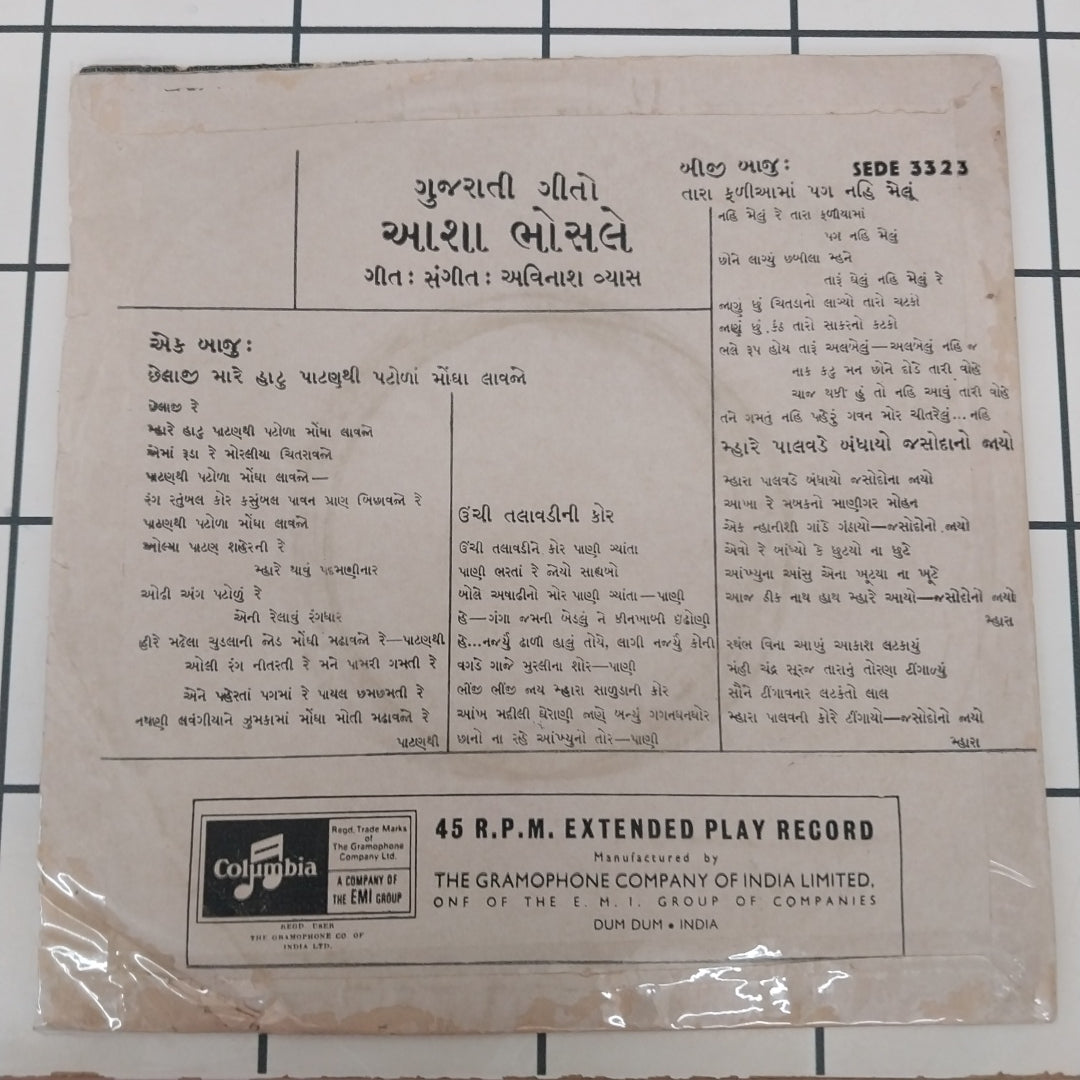 ગુજરાતી ગીતો
આશા ભોસલે
ગીત: સંગીત: અવિનાશ વ્યાસ
એક બાજુ:
છેલાજી મારે હાટુ પાટણથી પટોળાં મોંઘા લાવજો
છેલાજી રે
મ્હારે હાટુ પાટણથી પટોળા મોંઘા લાવજો
એમાં રૂડા રે મોરલીયા ચિતરાવજો
પાટણથી પટોળા મોંઘા લાવજો—
રંગ રતુંબલ કોર કસુંબલ પાવન પ્રાણ બિછાવજો રે
પાટણથી પટોળા મોંઘા લાવજો
ઓલ્યા પાટણ શહેરની રે
મ્હારે થાવું પદમણીનાર
ઓઢી અંગ પટોળું રે
એની રેલાવું રંગધાર
હીરે મઢેલા ચુડલાની જોડ મોંઘી મઢાવજો રે—પાટણથી
ઓલી રંગ નીતરતી રે મને પામરી ગમતી રે
એને પહેરતાં પગમાં રે પાયલ છમછમતી રે
નથણી લવંગીયાને ઝુમકામાં મોંઘા મોતી મઢાવજો રે
પાટણથી
ઉંચી તલાવડીની કોર
ઉંચી તલાવડીને કોર પાણી ગ્યાંતા
પાણી ભરતાં રે જોયો સાયબો
બોલે અષાઢીનો મોર પાણી ગ્યાંતા—પાણી
હે—ગંગા જમની બેડલું ને કીનખાબી ઇંઢોણી
હે...નજર્યું ઢાળી હાલું તોયે, લાગી નજર્યું કોની
વગડે ગાજે મુરલીના શોર—પાણી
ભીંજી ભીંજી જાય મ્હારા સાળુડાની કોર
આંખ મદીલી ઘેરાણી જાણે બન્યું ગગનઘનઘોર
છાનો ના રહે આંખ્યુનો તોર—પાણી
બીજી બાજુ: SEDE 3323
તારા ફળીઆમાં પગ નહિ મેલું
નહિ મેલું રે તારા ફળીયામાં
પગ નહિ મેલું
છોને લાગ્યું છબીલા મ્હને
તારૂં ઘેલું નહિ મેલું રે
જાણુ છું ચિતડાનો લાગ્યો તારો ચટકો
જાણું છું કંઠ તારો સાકરનો કટકો
ભલે રૂપ હોય તારૂં અલબેલું—અલબેલું નહિ જ
નાક કટુ મન છોને દોડે તારી વોહે
ચાજ થકી હું તો નહિ આવું તારી વોહે
તને ગમતું નહિ પહેરું ગવન મોર ચીતરેલું...નહિ
મ્હારે પાલવડે બંધાયો જસોદાનો જાયો
મ્હારા પાલવડે બંધાયો જસોદાના જાયો
આખા રે મલકનો માણીગર મોહન
એક ન્હાનીશી ગાંઠે ગંઠાયો—જસોદાનો જાયો
એવો રે બાંધ્યો કે છુટયો ના છુટે
આંખ્યુના આંસુ એના ખૂટયા ના ખૂટે
આજ ઠીક નાથ હાથ મ્હારે આયો—જસોદોનો જાયો
મ્હારા
સ્થંભ વિના આખું આકાશ લટકાયું
મંહી ચંદ્ર સૂરજ તારાનું તોરણા ટીંગાળ્યું
સૌને ટીંગાવનાર લટકંતો લાલ
મ્હારા પાલવની કોરે ટીંગાયો—જસોદોનો જાયો
મ્હારા
Columbia
Regd. Trade Marks
of
The Gramophone
Company Ltd.
A COMPANY OF
THE EMI GROUP
REGD. USER
THE GRAMOPHONE CO. OF
INDIA LTD.
45 R.P.M. EXTENDED PLAY RECORD
Manufactured by
THE GRAMOPHONE COMPANY OF INDIA LIMITED,
ONE OF THE E. M. I. GROUP OF COMPANIES
DUM DUM • INDIA